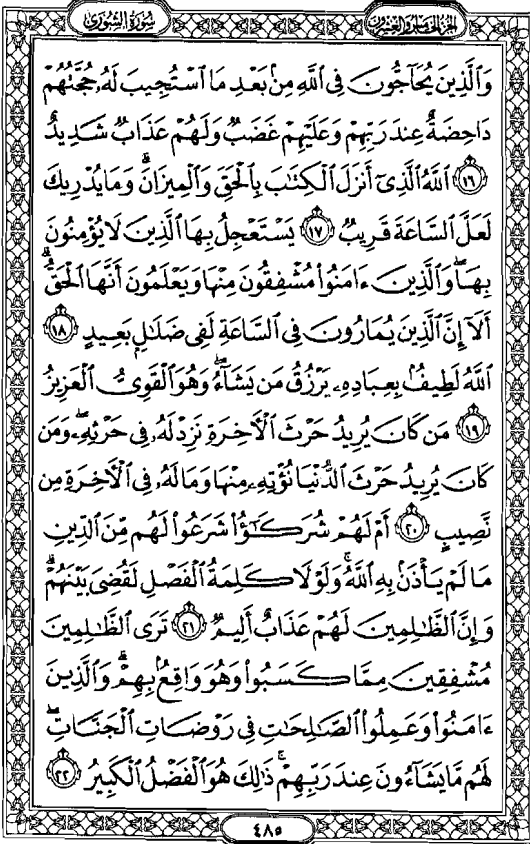 الجزء الخامس والعشرون
سورة الشورى
وَالَّذِينَ يُحَاجُّونَ فِي اللَّهِ مِنْ بَعْدِ مَا اسْتُجِيبَ لَهُ حُجَّتُهُمْ
دَاحِضَةٌ عِندَ رَبِّهِمْ وَعَلَيْهِمْ غَضَبٌ وَلَهُمْ عَذَابٌ شَدِيدٌ
١٦ ٱللَّهُ ٱلَّذِىٓ أَنزَلَ ٱلْكِتَٰبَ بِٱلْحَقِّ وَٱلْمِيزَانَ ۗ وَمَا يُدْرِيكَ
لَعَلَّ ٱلسَّاعَةَ قَرِيبٌ ١٧ يَسْتَعْجِلُ بِهَا ٱلَّذِينَ لَا يُؤْمِنُونَ
بِهَا ۖ وَٱلَّذِينَ ءَامَنُوا۟ مُشْفِقُونَ مِنْهَا وَيَعْلَمُونَ أَنَّهَا ٱلْحَقُّ ۗ
أَلَآ إِنَّ ٱلَّذِينَ يُمَارُونَ فِى ٱلسَّاعَةِ لَفِى ضَلَٰلٍۭ بَعِيدٍ ١٨
ٱللَّهُ لَطِيفٌۢ بِعِبَادِهِۦ يَرْزُقُ مَن يَشَآءُ ۖ وَهُوَ ٱلْقَوِىُّ ٱلْعَزِيزُ
١٩ مَن كَانَ يُرِيدُ حَرْثَ ٱلْءَاخِرَةِ نَزِدْ لَهُۥ فِى حَرْثِهِۦ ۖ وَمَن
كَانَ يُرِيدُ حَرْثَ ٱلدُّنْيَا نُؤْتِهِۦ مِنْهَا وَمَا لَهُۥ فِى ٱلْءَاخِرَةِ مِن
نَّصِيبٍ ٢٠ أَمْ لَهُمْ شُرَكَٰٓؤُا۟ شَرَعُوا۟ لَهُم مِّنَ ٱلدِّينِ
مَا لَمْ يَأْذَنۢ بِهِ ٱللَّهُ ۚ وَلَوْلَا كَلِمَةُ ٱلْفَصْلِ لَقُضِىَ بَيْنَهُمْ ۗ
وَإِنَّ ٱلظَّٰلِمِينَ لَهُمْ عَذَابٌ أَلِيمٌ ٢١ تَرَى ٱلظَّٰلِمِينَ
مُشْفِقِينَ مِمَّا كَسَبُوا۟ وَهُوَ وَاقِعٌۢ بِهِمْ ۗ وَٱلَّذِينَ
ءَامَنُوا۟ وَعَمِلُوا۟ ٱلصَّٰلِحَٰتِ فِى رَوْضَاتِ ٱلْجَنَّاتِ ۖ
لَهُم مَّا يَشَآءُونَ عِندَ رَبِّهِمْ ۚ ذَٰلِكَ هُوَ ٱلْفَضْلُ ٱلْكَبِيرُ ٢٢
٤٨٥